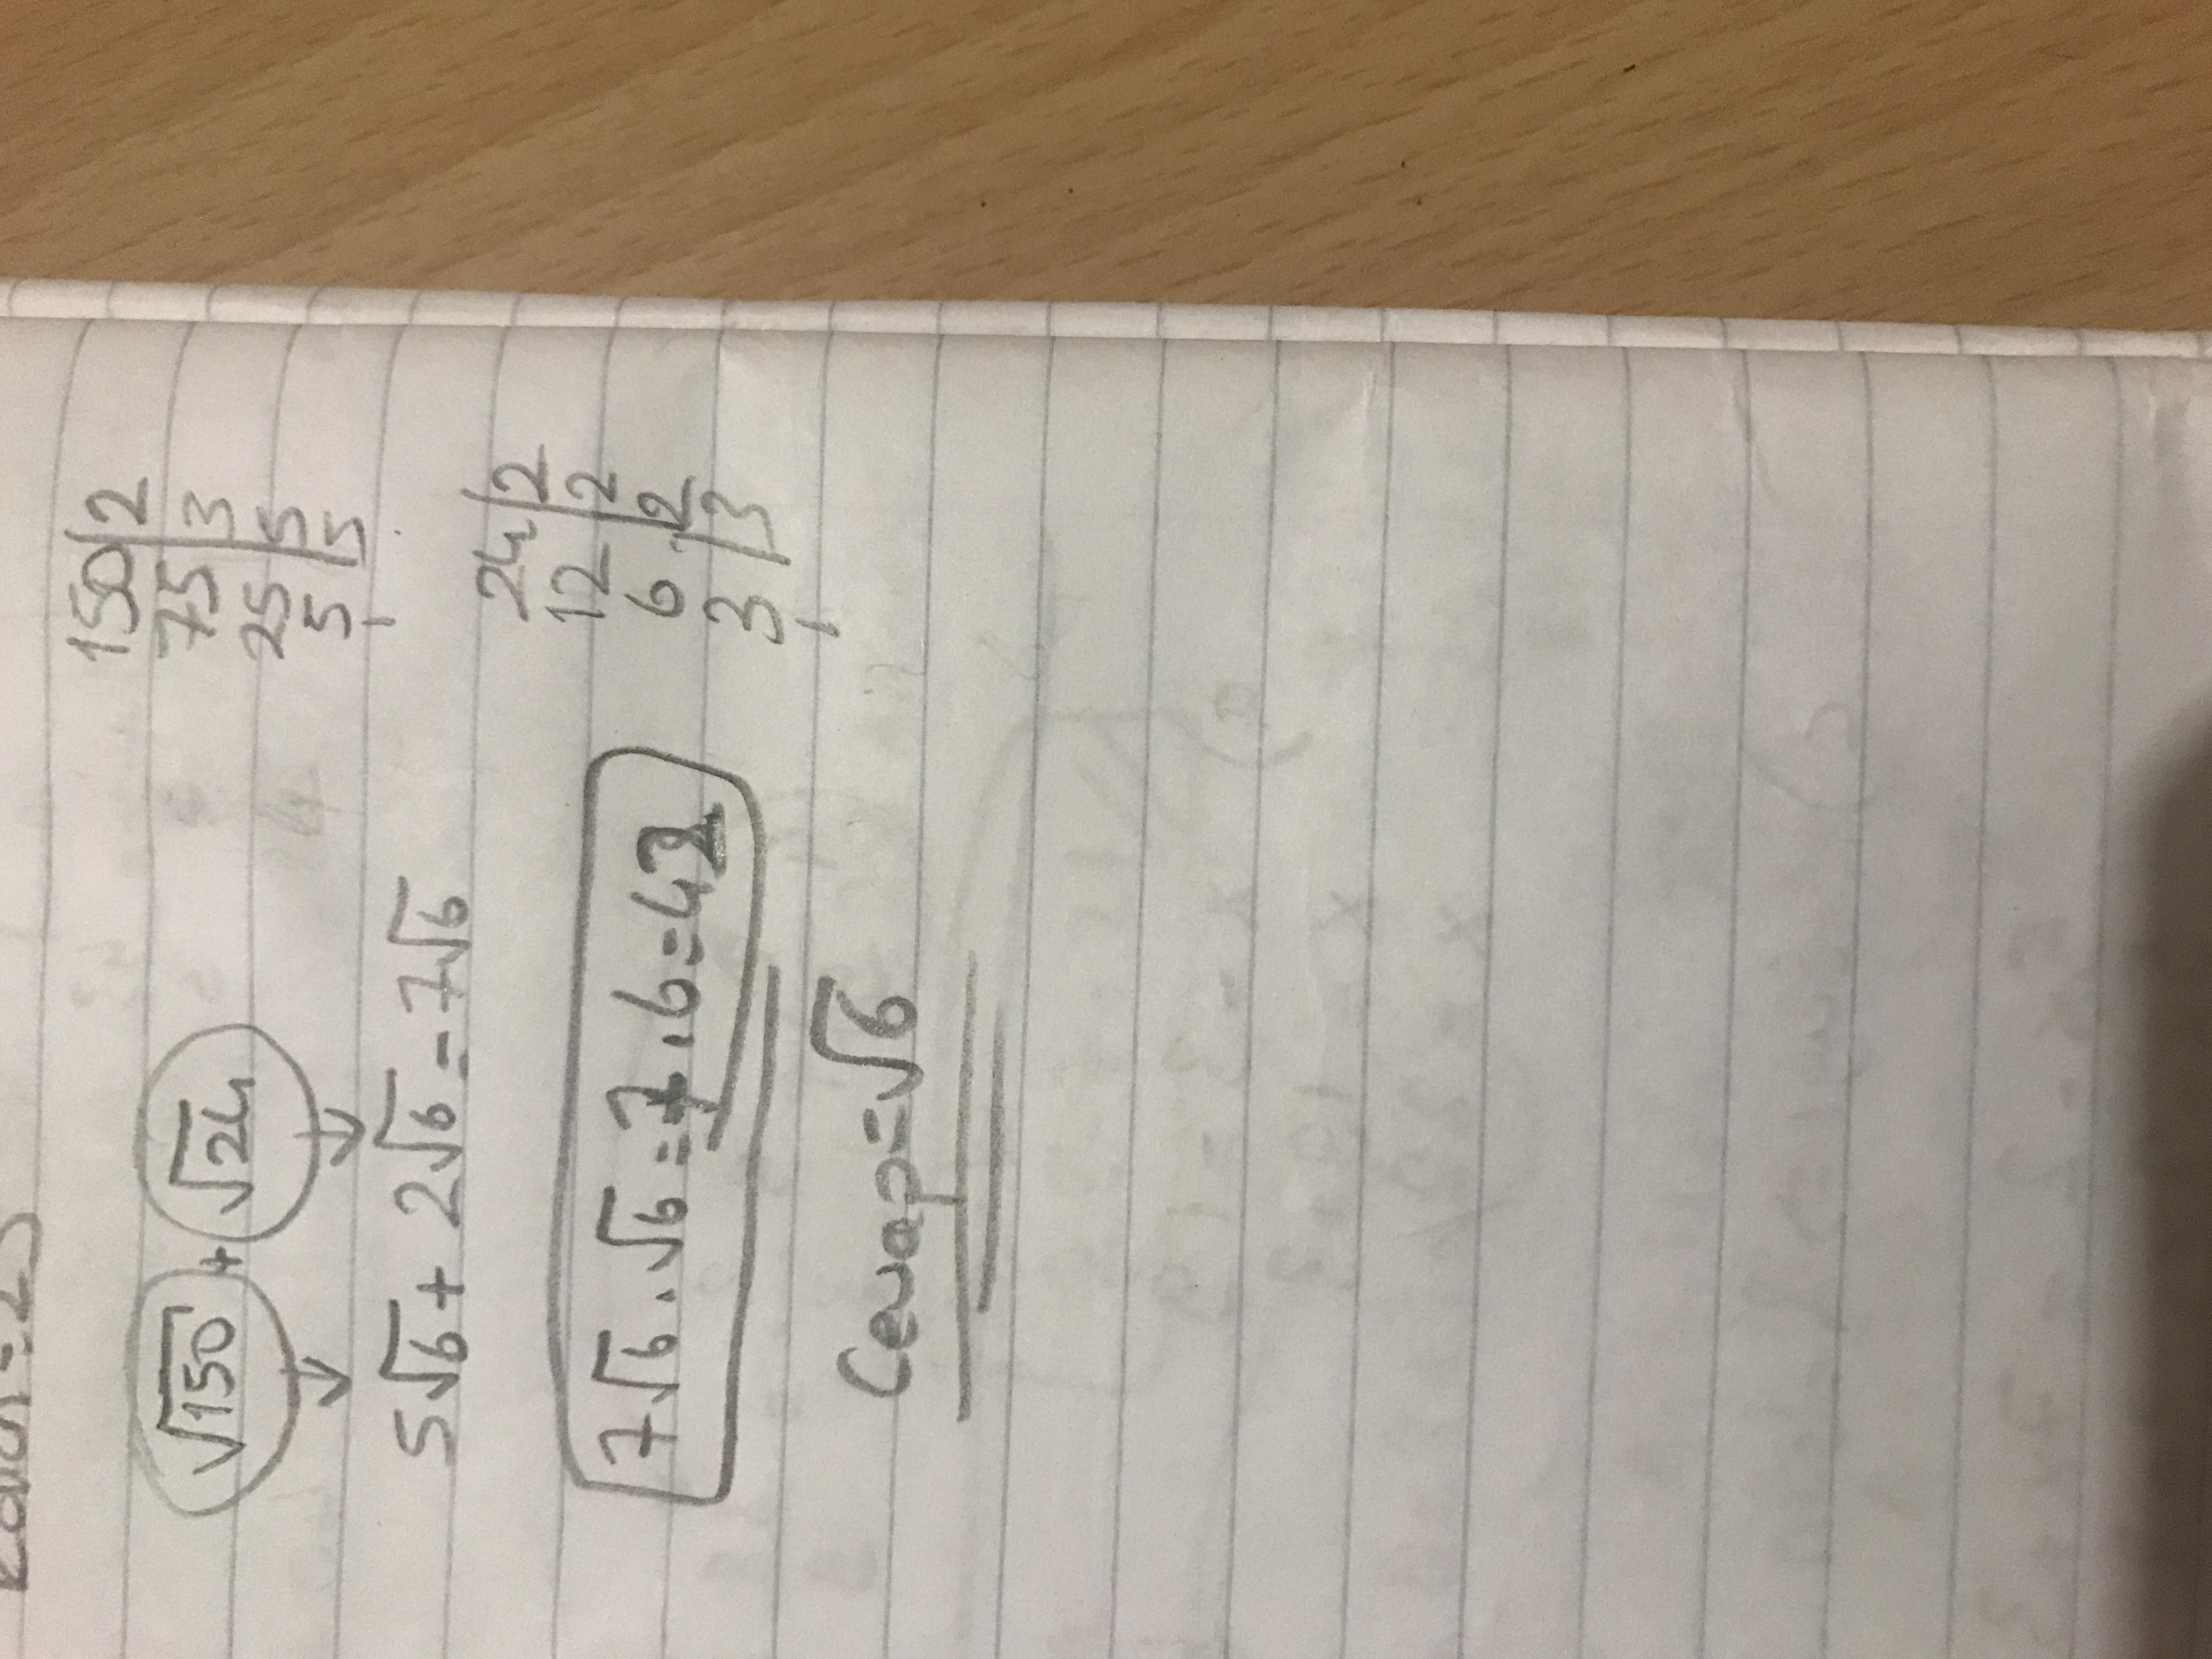 √150 + √24
5√6 + 2√6 = 7√6
7√6 . √6 = 7 . 6 = 42
Cevap = √6
150 | 2
75 | 3
25 | 5
5 | 5
1
24 | 2
12 | 2
6 | 2
3 | 3
1